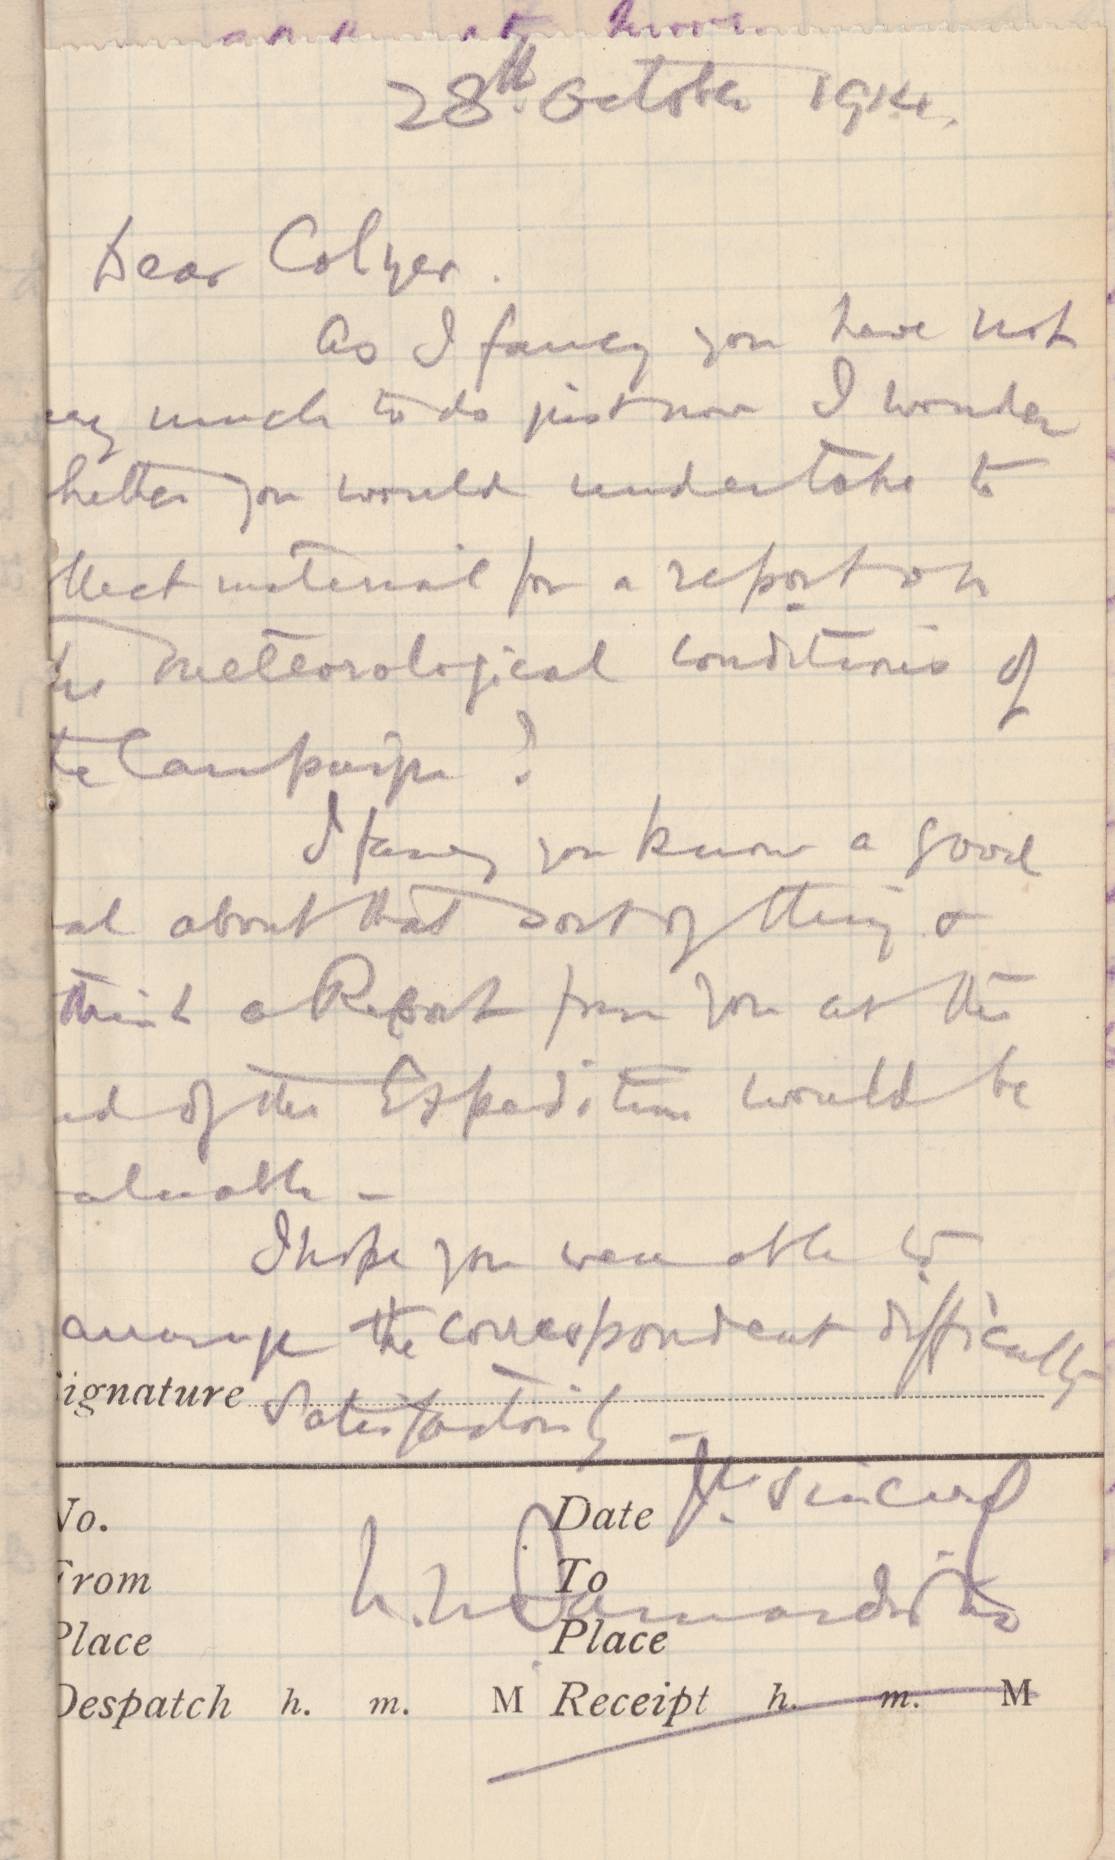 28th October 1914.
Dear Colyer.
As I fancy you have not
ery much to do just now I wonder
hether you would undertake to
llect material for a report on
the meteorological conditions of
te Campaign?
I fancy you know a good
al about that sort of thing &
think a Report from you at the
nd of the Expedition would be
aluable –
I hope you were able to
arrange the correspondent difficulty
ignature Satisfactorily –
Yrs. sincerely
No. Date
From To
Place Place
Despatch h. m. M Receipt h. m. M